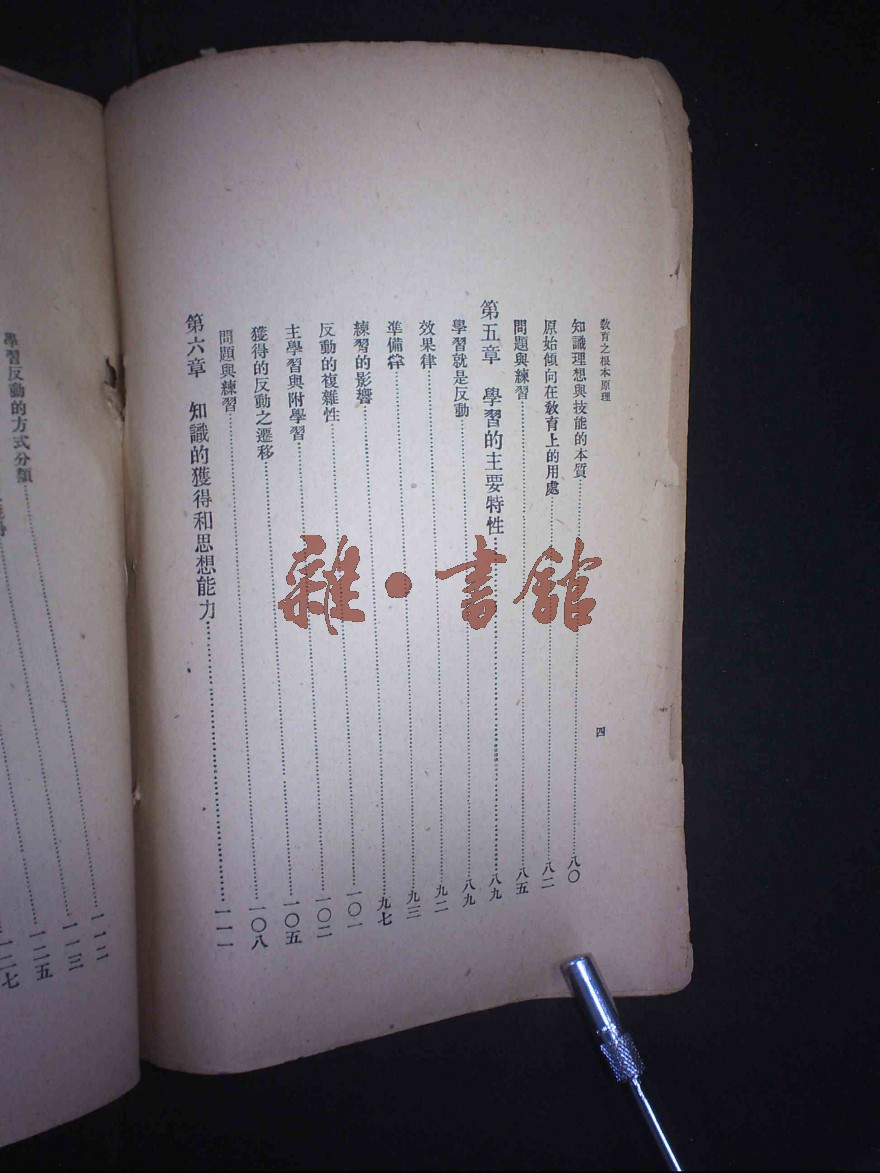 教育之根本原理
四
知識理想與技能的本質…………八〇
原始傾向在教育上的用處…………八二
問題與練習…………八五
第五章　學習的主要特性…………八九
學習就是反動…………八九
效果律…………九二
準備律…………九三
練習的影響…………九七
反動的複雜性…………一〇一
主學習與附學習…………一〇二
獲得的反動之遷移…………一〇五
問題與練習…………一〇八
第六章　知識的獲得和思想能力…………一一一
學習反動的方式分類…………一一二
一一三
一二五
一二七
雜·書館